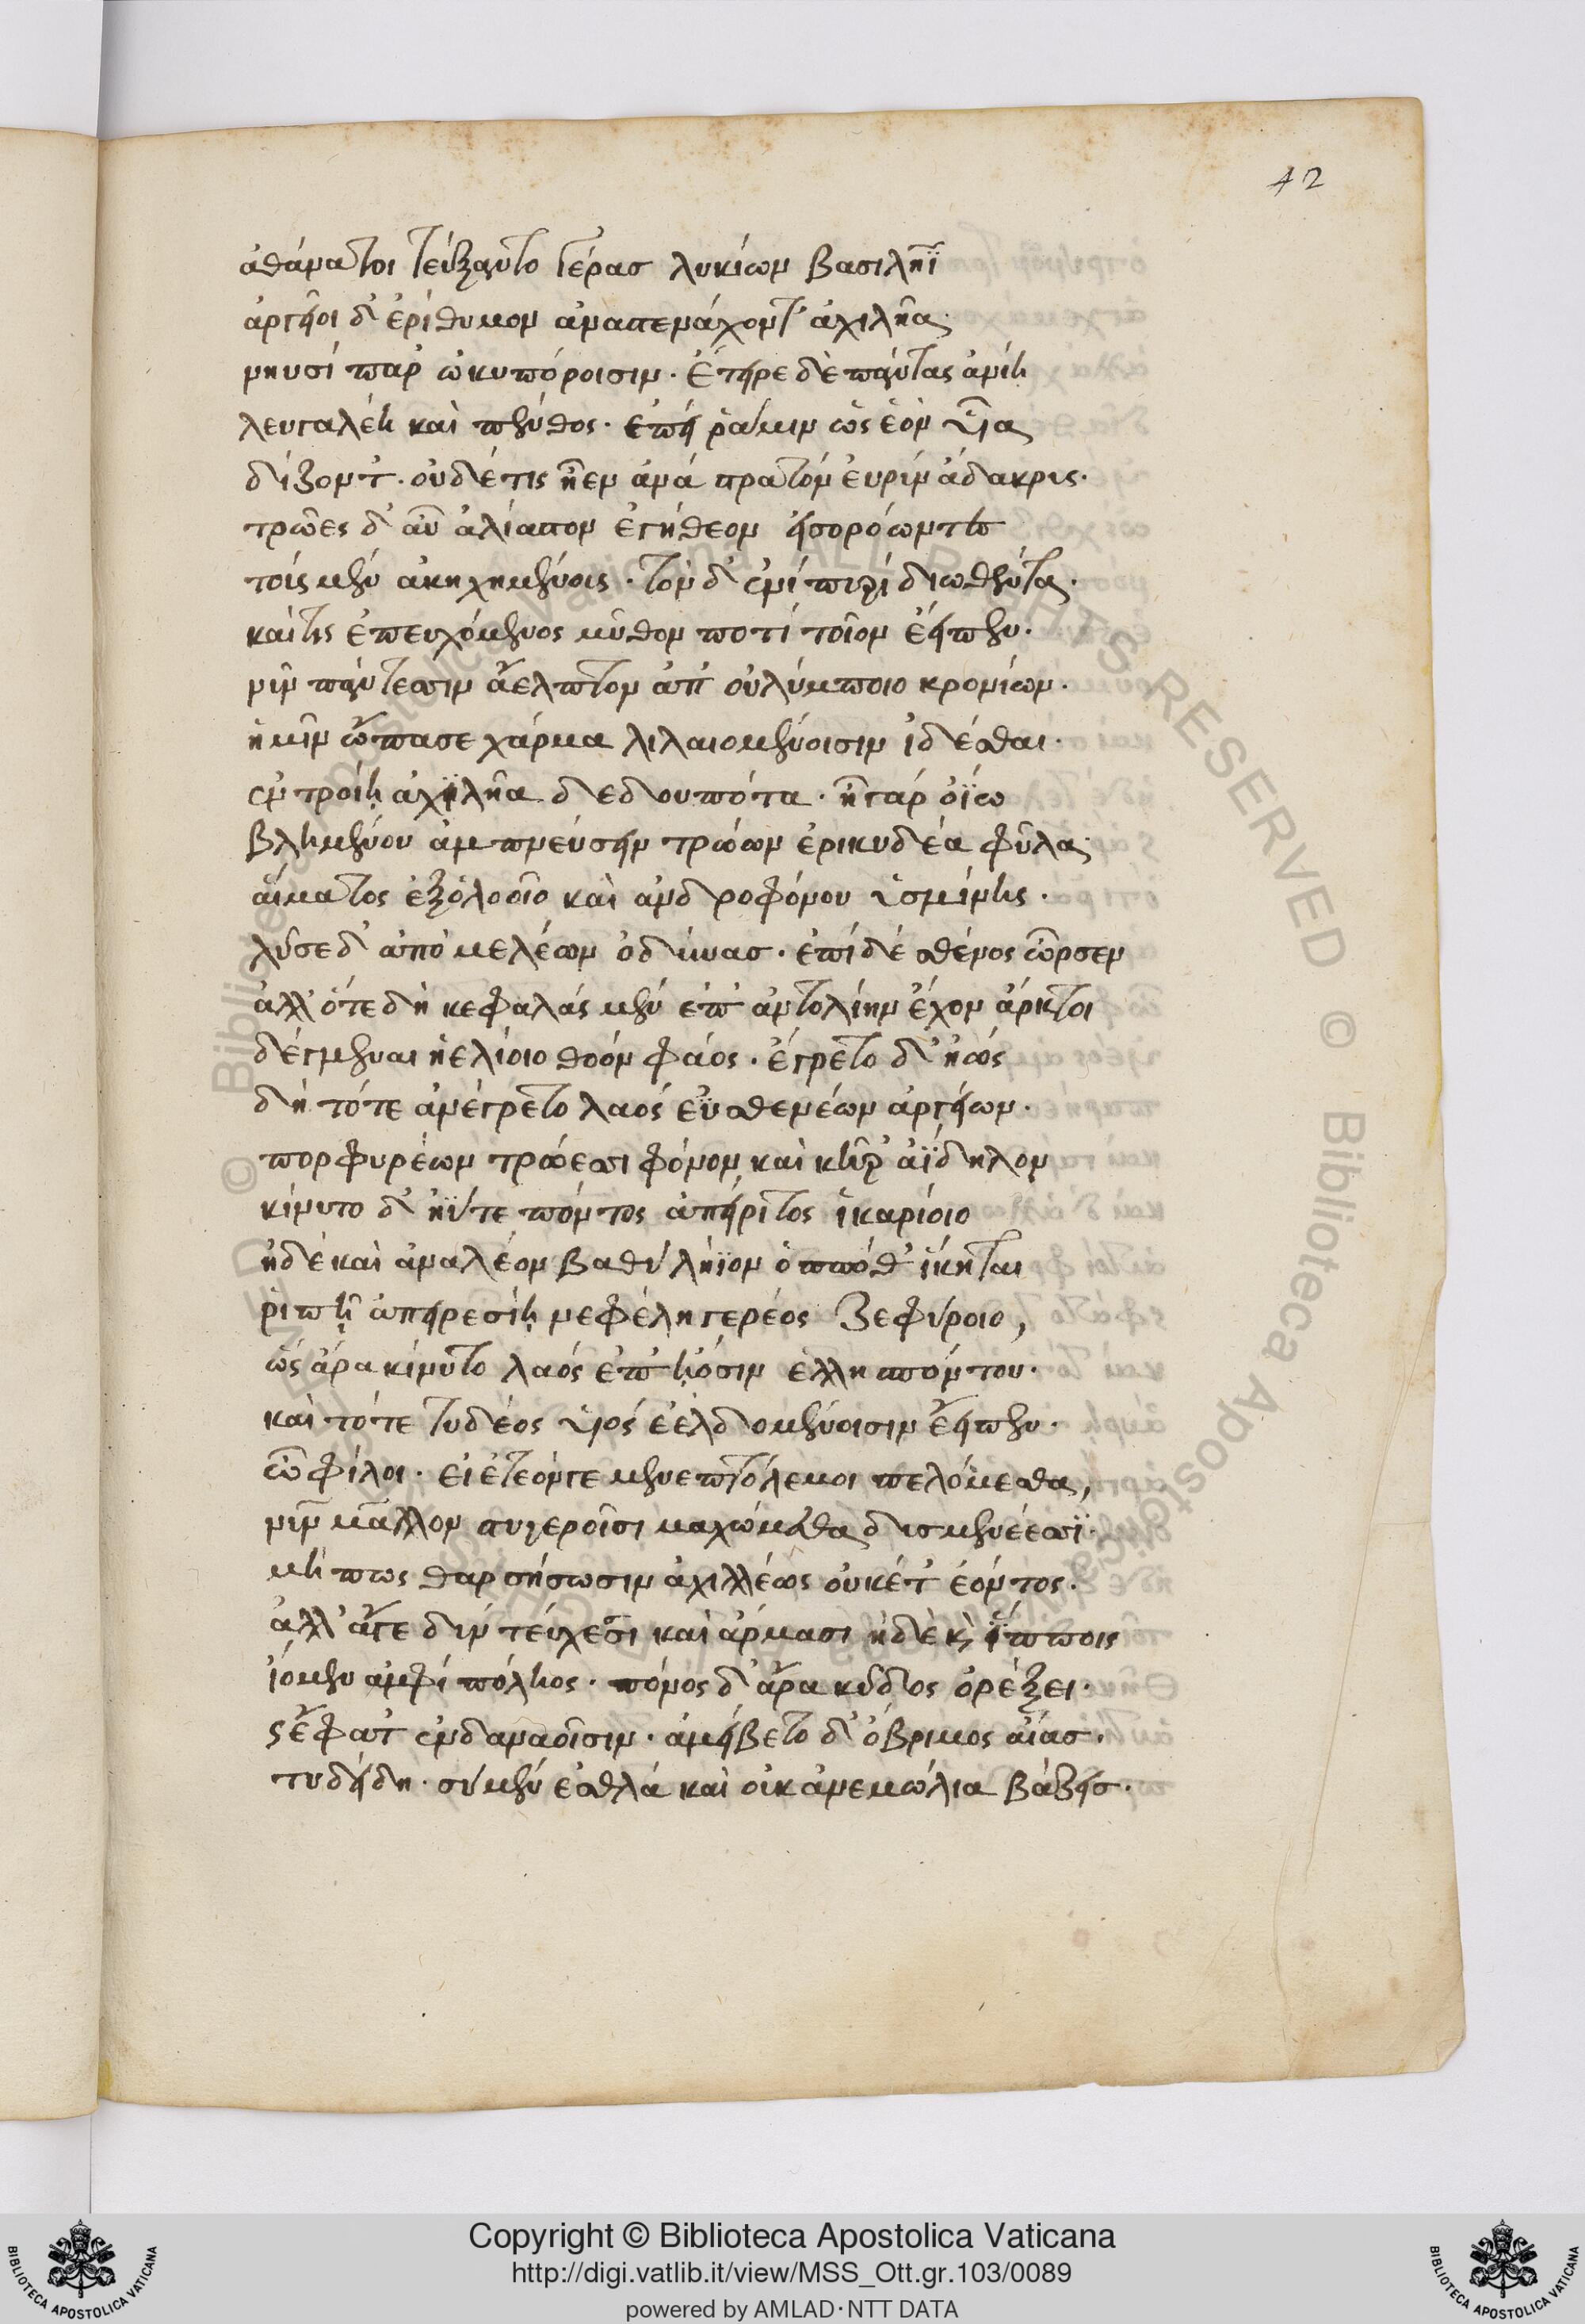 42
ἀθάνατοι τεύξαντο γέρας λυκίων βασιλῆϊ
ἀργεῖοι δ' ἐρίθυμον ἀναστενάχοντ' ἀχιλῆα·
νηυσὶ παρ' ὠκυπόροισιν· ἔτειρε δὲ πάντας ἀνίη
λευγαλέη καὶ πένθος· ἐπεί ῥά μιν ὡς ἑὸν υἷα
δίζοντ'· οὐδέ τις ἦεν ἀνὰ στρατὸν εὐρὺν ἄδακρις·
τρῶες δ' αὖ ἀλίαστον ἐγήθεον εἰσορόωντες
τοὺς μὲν ἀκηχημένους· τὸν δ' ἐν πυρὶ δηωθέντα·
καί τις ἐπευχόμενος μῦθον ποτὶ τοῖον ἔειπεν·
νῦν πάντεσσιν ἄελπτον ἀπ' οὐλύμποιο κρονίων·
ἡμῖν ὤπασε χάρμα λιλαιομένοισιν ἰδέσθαι·
ἐν τροίῃ ἀχιλῆα δεδουπότα· ἦ γὰρ ὀΐω
βλημένου ἀμπνεύσειν τρώων ἐρικυδέα φῦλα·
αἵματος ἐξ ὀλοοῖο καὶ ἀνδροφόνου ὑσμίνης·
λῦσε δ' ἀπὸ μελέων ὀδύνας· ἐπὶ δὲ σθένος ὦρσεν
ἀλλ' ὅτε δὴ κεφαλὰς μὲν ἐπ' ἀντολίην ἔχον ἄρκτοι
δέγμεναι ἠελίοιο θοὸν φάος· ἔγρετο δ' ἠώς
δὴ τότε ἀνέγρετο λαὸς ἐϋσθενέων ἀργείων·
πορφυρέων τρώεσσι φόνον καὶ κῆρ' ἀΐδηλον
κίνυτο δ' ἠΰτε πόντος ἀπείριτος ἰκαρίοιο
ἠδὲ καὶ ἀναλέον βαθὺ λήϊον ὁππόθ' ἵκηται
ῥιπῇ ἀπειρεσίῃ νεφεληγερέος ζεφύροιο,
ὣς ἄρα κίνυτο λαὸς ἐπ' ᾐόσιν ἑλλησπόντου·
καὶ τότε τυδέος υἱὸς ἐελδομένοισιν ἔειπεν·
ὦ φίλοι· εἰ ἐτεόν γε μενεπτόλεμοι πελόμεσθα,
νῦν μᾶλλον στυγεροῖσι μαχώμεθα δυσμενέεσσϊ·
μή πως θαρσήσωσιν ἀχιλλέως οὐκέτ' ἐόντος·
ἀλλ' ἄγε δὴν τεύχεσι καὶ ἅρμασι ἠδὲ κ̀ ἵπποις
ἴομεν ἀμφὶ πόληος· πόνος δ' ἄρα κῦδος ὀρέξει·
ὣς ἔφατ' ἐν δαναοῖσιν· ἀμείβετο δ' ὄβριμος αἴας·
τυδείδη· σὺ μὲν ἐσθλὰ καὶ οὐκ ἀνεμώλια βάζεις·
Copyright © Biblioteca Apostolica Vaticana
http://digi.vatlib.it/view/MSS_Ott.gr.103/0089
powered by AMLAD·NTT DATA